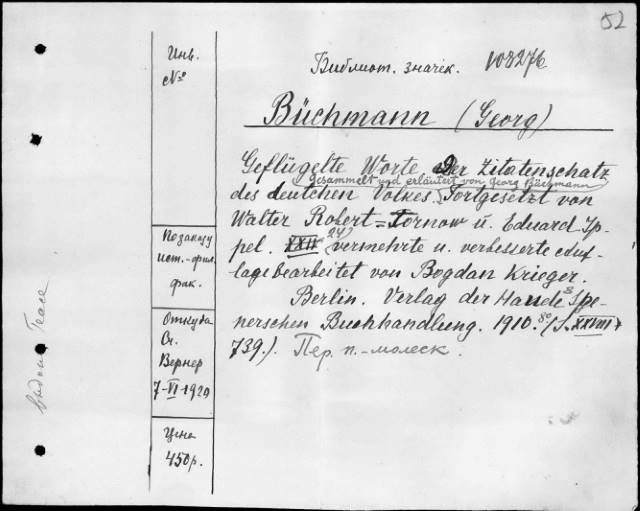 52
Инв.
№
Библиот. значек. 108276
Büchmann (Georg)
Geflügelte Worte Der Zitatenschatz
gesammelt und erläutert von Georg Büchmann
des deutchen Volkes. Fortgesetzt von
Walter Robert=Tornow u. Eduard Ip-
pel. XXIV 24) vermehrte u. verbesserte Auf-
lage bearbeitet von Bogdan Krieger.
Berlin. Verlag der Haude & Spe-
nerschen Buchhandlung. 1910. 8º (S. XXVIII +
739.). Пер. п.-молеск.
По заказу
ист.-фил.
фак.
Откуда
От.
Вернер
7-VI-1929
Цена
450р.